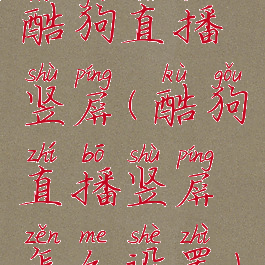 酷狗直播
shù píng kù gǒu
竖屏(酷狗
zhí bō shù píng
直播竖屏
zěn me shè zhì
怎么设置)